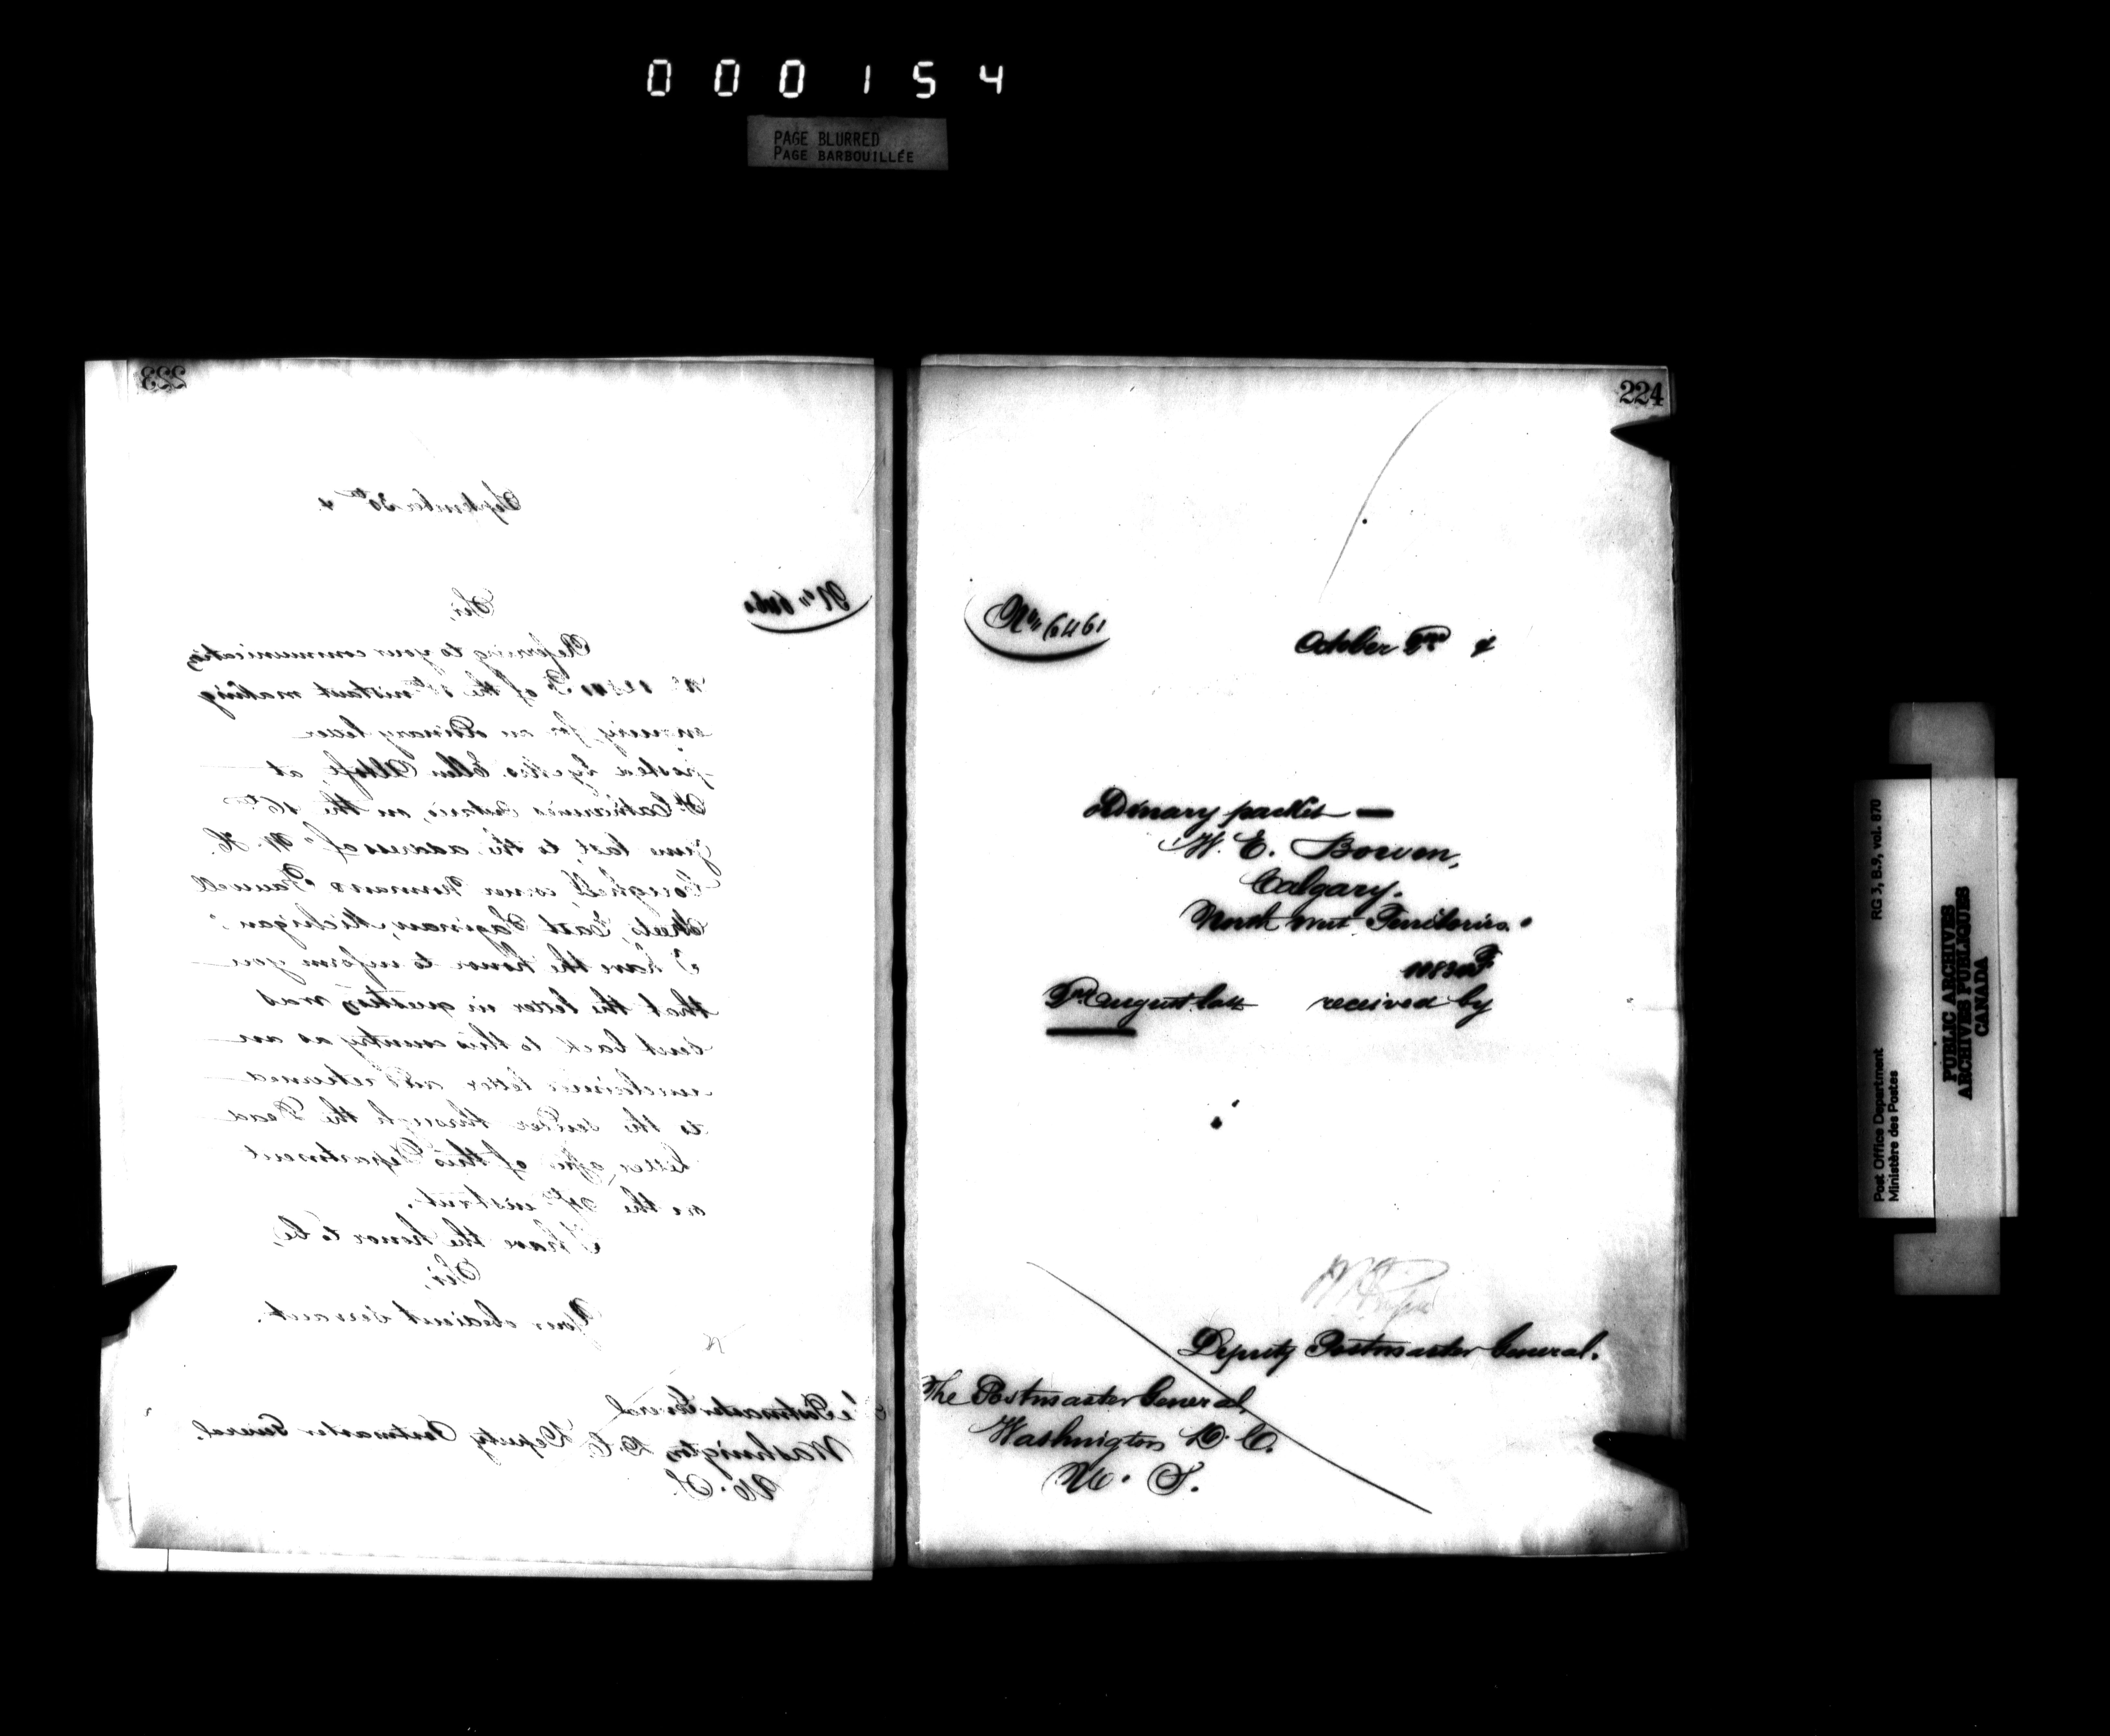 000154
PAGE BLURRED
PAGE BARBOUILLÉE
223
September 30th 4
No. 6460
Sir,
Referring to your communication
No of the instant making
enquiry for an ordinary letter
posted by Mrs. Ellen at
St. Catharines Ontario, on the 16th
June last, to the address of "W. H.
corner
Streets, East Saginaw, Michigan."
I have the honor to inform you
that the letter in question was
sent back to this country as an
unclaimed letter and returned
to the sender through the Dead
letter office of this Department
on the instant.
I have the honor to be,
Sir,
Your obedient servant.
The Postmaster General
Washington D. C. Deputy Postmaster General.
U. S.
224
No. 6461
October 4
Ordinary packet —
W. E. Bowen,
Calgary.
North West Territories.
August last received by
Deputy Postmaster General.
The Postmaster General,
Washington D. C.
U. S.
Post Office Department
Ministère des Postes
RG 3, B.9, vol. 870
PUBLIC ARCHIVES
ARCHIVES PUBLIQUES
CANADA